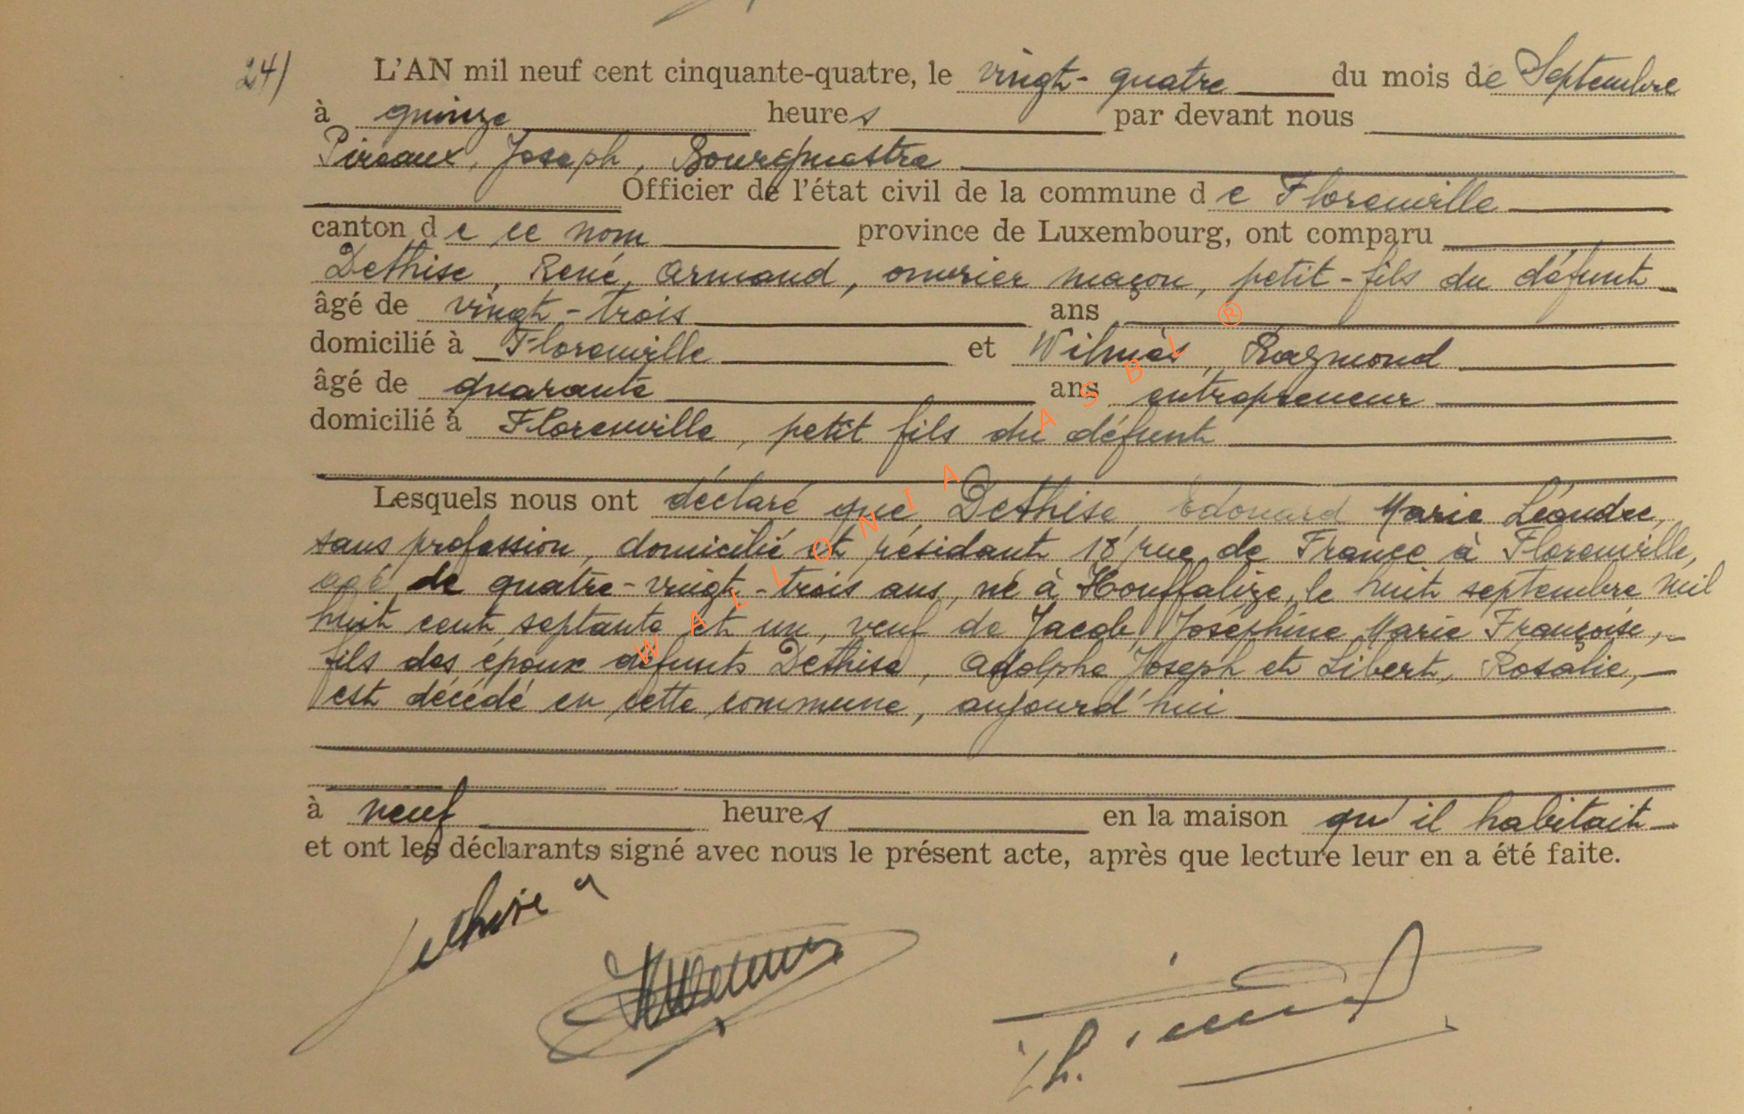 24) L'AN mil neuf cent cinquante-quatre, le vingt-quatre du mois de Septembre
à quinze heures par devant nous
Pireaux, Joseph, Bourgmestre
Officier de l'état civil de la commune de Florenville
canton de ce nom province de Luxembourg, ont comparu
Dethise, René, Armand, ouvrier maçon, petit-fils du défunt
âgé de vingt-trois ans
domicilié à Florenville et Wilmès, Raymond
âgé de quarante ans entrepreneur
domicilié à Florenville, petit fils du défunt
Lesquels nous ont déclaré que Dethise, Edouard Marie Léandre,
sans profession, domicilié et résidant 18 rue de France à Florenville,
agé de quatre-vingt-trois ans, né à Houffalize, le huit septembre mil
huit cent septante et un, veuf de Jacob, Joséphine Marie Françoise,
fils des époux défunts Dethise, Adolphe Joseph et Libert, Rosalie,
est décédé en cette commune, aujourd'hui
à neuf heures en la maison qu'il habitait
et ont les déclarants signé avec nous le présent acte, après que lecture leur en a été faite.
WALLONIA ASBL ®